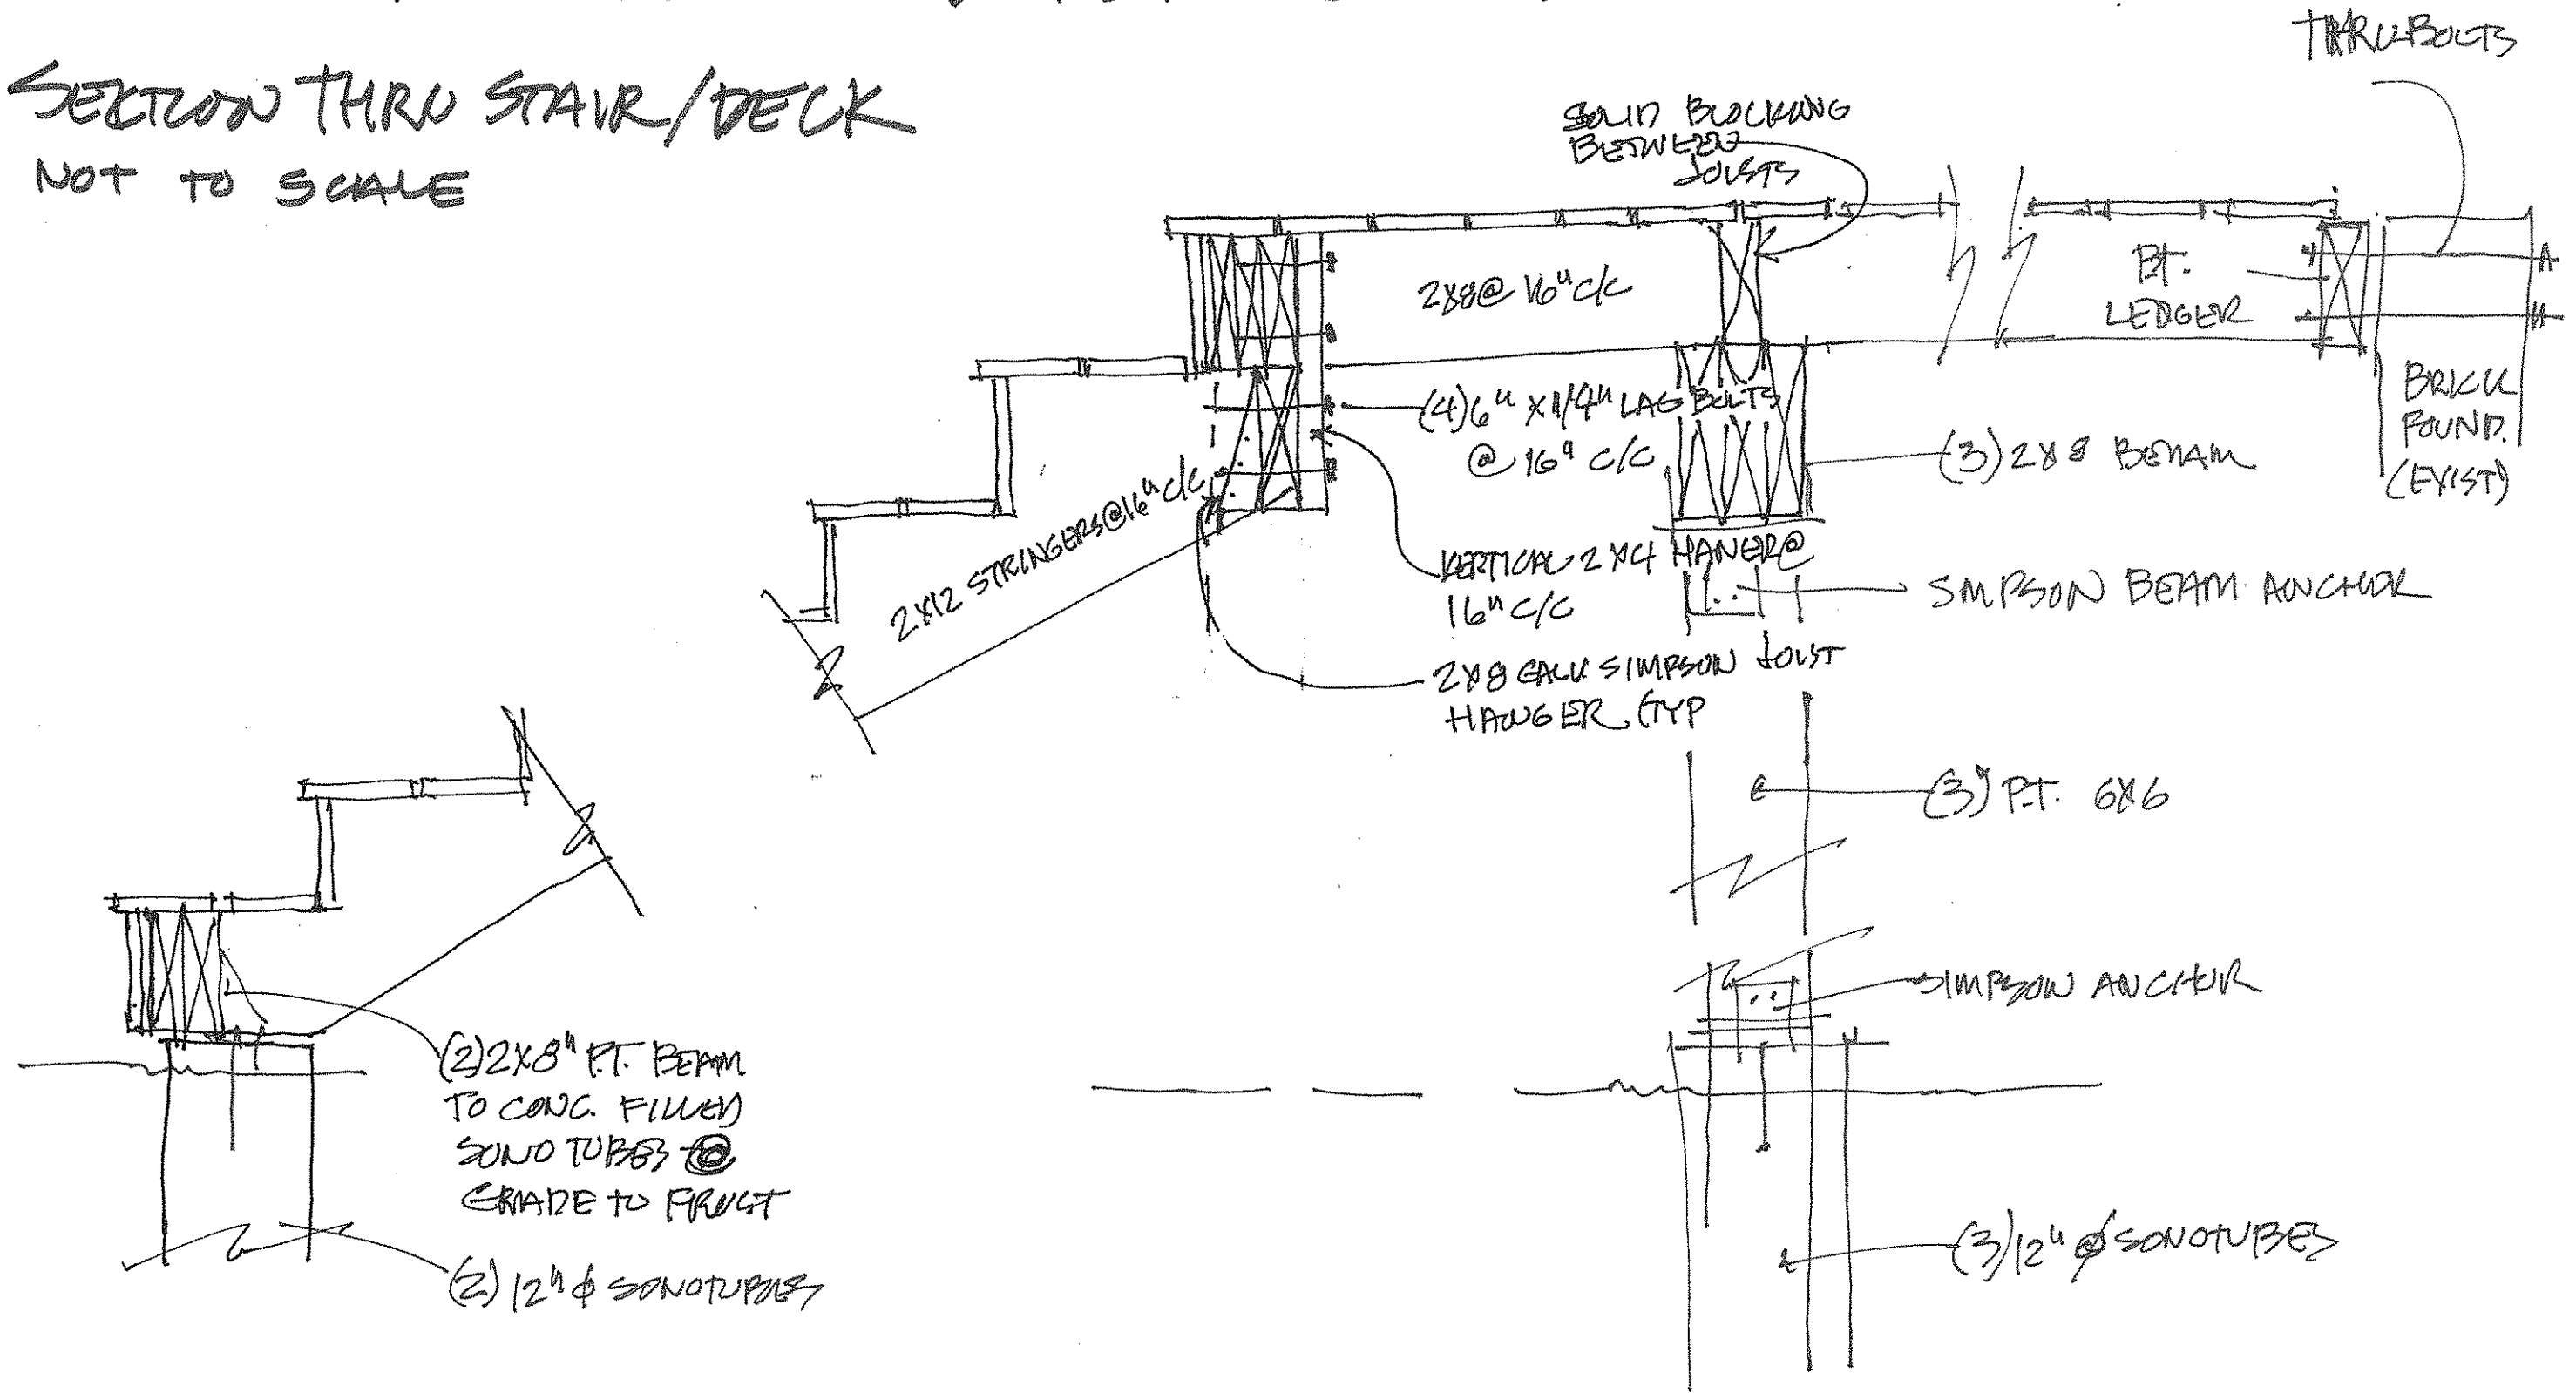 SECTION THRU STAIR/DECK
NOT TO SCALE
THRU BOLTS
SOLID BLOCKING
BETWEEN
JOISTS
2X8@ 16" C/C
P.T.
LEDGER
BRICK
FOUND.
(EXIST)
(4) 6" X 1/4" LAG BOLTS
@ 16" C/C
(3) 2X8 BEAM
2X12 STRINGERS@16" C/C
VERTICAL 2X4 HANER@
16" C/C
SMPSON BEAM ANCHOR
2X8 GALV SIMPSON JOIST
HANGER (TYP
(3) P.T. 6X6
SIMPSON ANCHOR
(2) 2X8" P.T. BEAM
TO CONC. FILLED
SONO TUBES @
GRADE TO FROST
(2) 12" ϕ SONOTUBES
(3) 12" ϕ SONOTUBES